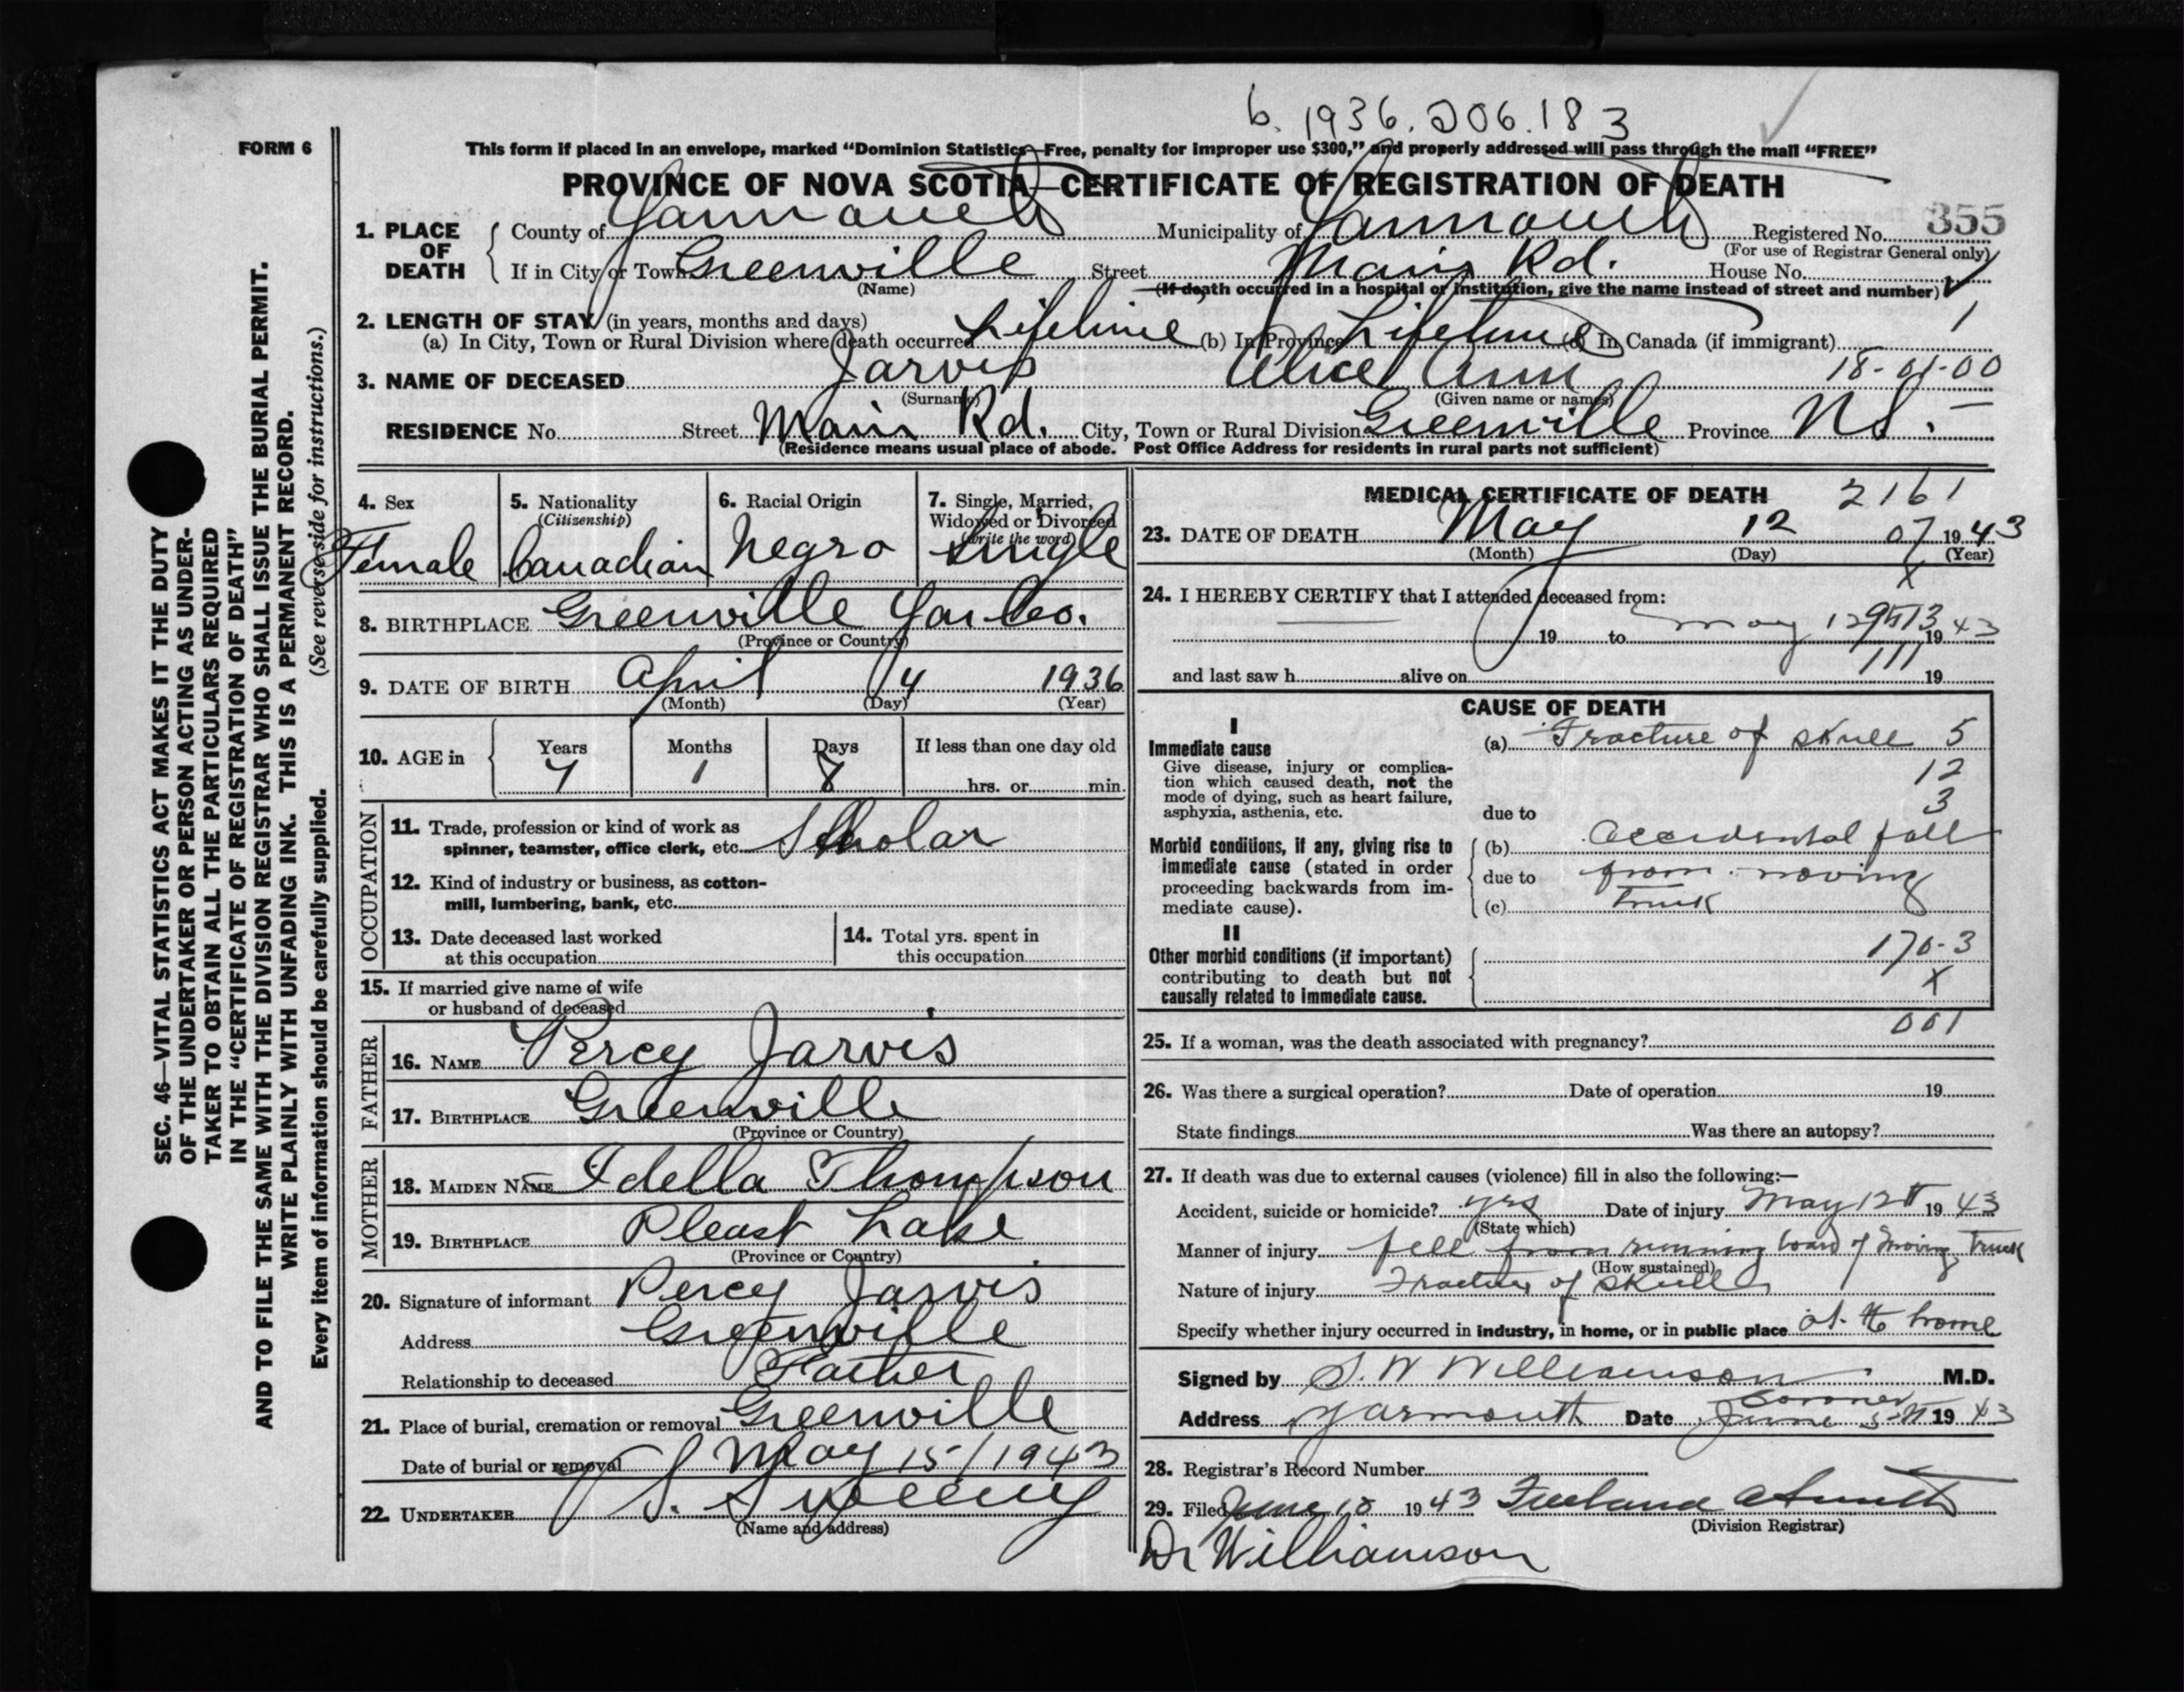 b. 1936. 206. 183
FORM 6
This form if placed in an envelope, marked “Dominion Statistics—Free, penalty for improper use $300,” and properly addressed will pass through the mail “FREE”
PROVINCE OF NOVA SCOTIA—CERTIFICATE OF REGISTRATION OF DEATH
355
1. PLACE OF DEATH County of Yarmouth Municipality of Yarmouth Registered No.
(For use of Registrar General only)
If in City or Town Greenville Street Main Rd. House No.
(Name) (If death occurred in a hospital or institution, give the name instead of street and number)
2. LENGTH OF STAY (in years, months and days) 1
(a) In City, Town or Rural Division where death occurred Lifetime (b) In Province Lifetime (c) In Canada (if immigrant)
3. NAME OF DECEASED Jarvis Alice Ann 18-01-00
(Surname) (Given name or names)
RESIDENCE No. Street Main Rd. City, Town or Rural Division Greenville Province N.S.
(Residence means usual place of abode. Post Office Address for residents in rural parts not sufficient)
4. Sex 5. Nationality (Citizenship) 6. Racial Origin 7. Single, Married, Widowed or Divorced (write the word)
Female Canadian Negro Single
8. BIRTHPLACE Greenville Yar. Co.
(Province or Country)
9. DATE OF BIRTH April 4 1936
(Month) (Day) (Year)
10. AGE in Years Months Days If less than one day old
7 1 8 hrs. or min.
OCCUPATION
11. Trade, profession or kind of work as
spinner, teamster, office clerk, etc. Scholar
12. Kind of industry or business, as cotton-
mill, lumbering, bank, etc.
13. Date deceased last worked
at this occupation
14. Total yrs. spent in
this occupation
15. If married give name of wife
or husband of deceased
FATHER
16. NAME Percy Jarvis
17. BIRTHPLACE Greenville
(Province or Country)
MOTHER
18. MAIDEN NAME Idella Thompson
19. BIRTHPLACE Pleast Lake
(Province or Country)
20. Signature of informant Percy Jarvis
Address Greenville
Relationship to deceased Father
21. Place of burial, cremation or removal Greenville
Date of burial or removal May 15/1943
22. UNDERTAKER V. S. Sweeny
(Name and address)
MEDICAL CERTIFICATE OF DEATH 2161
23. DATE OF DEATH May 12 07 1943
(Month) (Day) (Year)
X
24. I HEREBY CERTIFY that I attended deceased from:
19 to May 12 1943
9513
111
and last saw h alive on 19
CAUSE OF DEATH
I
Immediate cause (a) Fracture of skull 5
Give disease, injury or complica-
tion which caused death, not the
mode of dying, such as heart failure,
asphyxia, asthenia, etc.
12
3
due to
Morbid conditions, if any, giving rise to
immediate cause (stated in order
proceeding backwards from im-
mediate cause).
(b) Accidental fall
due to from moving
(c) truck
II
Other morbid conditions (if important)
contributing to death but not
causally related to immediate cause.
170-3
X
001
25. If a woman, was the death associated with pregnancy?
26. Was there a surgical operation? Date of operation 19
State findings Was there an autopsy?
27. If death was due to external causes (violence) fill in also the following:—
Accident, suicide or homicide? yes Date of injury May 12th 1943
(State which)
Manner of injury fell from running board of moving truck
(How sustained)
Nature of injury Fracture of skull
Specify whether injury occurred in industry, in home, or in public place at home
Signed by S. W Williamson M.D.
Coroner
Address Yarmouth Date June 5th 1943
28. Registrar's Record Number
29. Filed June 10 1943
(Division Registrar)
Dr Williamson
SEC. 46—VITAL STATISTICS ACT MAKES IT THE DUTY
OF THE UNDERTAKER OR PERSON ACTING AS UNDER-
TAKER TO OBTAIN ALL THE PARTICULARS REQUIRED
IN THE “CERTIFICATE OF REGISTRATION OF DEATH”
AND TO FILE THE SAME WITH THE DIVISION REGISTRAR WHO SHALL ISSUE THE BURIAL PERMIT.
WRITE PLAINLY WITH UNFADING INK. THIS IS A PERMANENT RECORD.
Every item of information should be carefully supplied. (See reverse side for instructions.)